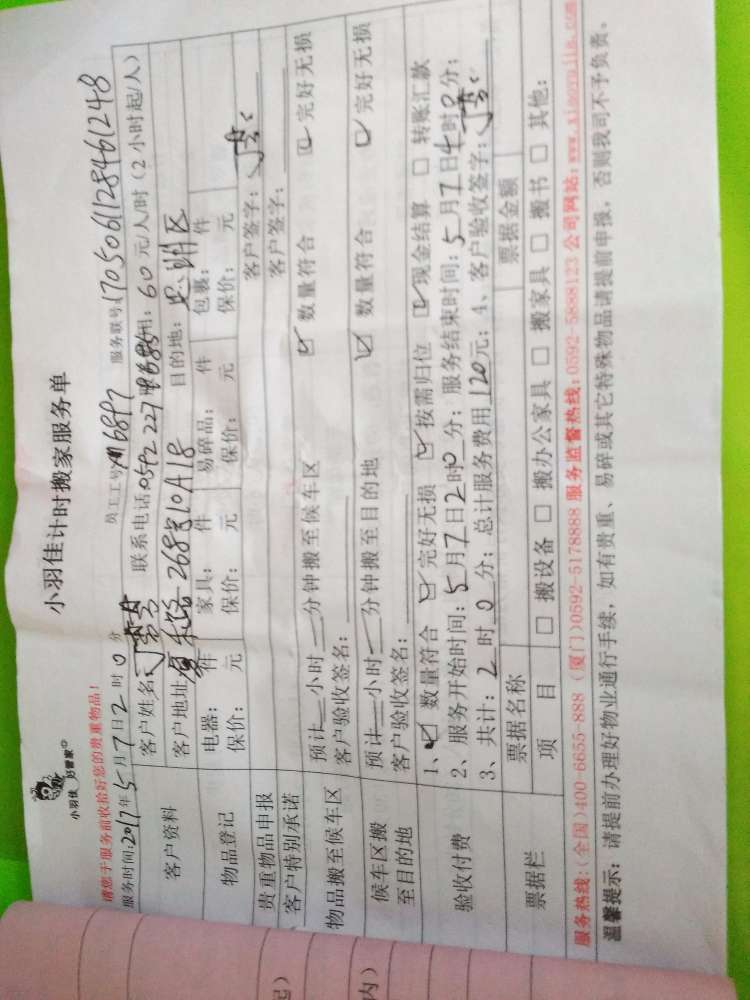 小羽佳 好管家
小羽佳计时搬家服务单
请您于服务前收拾好您的贵重物品!
服务时间:2017年5月7日2时0分 员工工号 6897 服务联号:1705061128461248
客户资料
客户姓名: 联系电话:0592 用:60元/人/时(2小时起/人)
客户地址: 268号10A18 目的地:思明区
物品登记
电器: 件 家具: 件 易碎品: 件 包裹: 件
保价: 元 保价: 元 保价: 元 保价: 元
贵重物品申报 客户签字:
客户特别承诺 客户签字:
物品搬至候车区
预计 小时 分钟搬至候车区 ☑ 数量符合 ☑ 完好无损
客户验收签名:
候车区搬至目的地
预计 小时 分钟搬至目的地 ☑ 数量符合 ☑ 完好无损
客户验收签名:
验收付费
1、☑ 数量符合 ☑ 完好无损 ☑ 按需归位 ☑ 现金结算 □ 转账汇款
2、服务开始时间:5月7日2时0分;服务结束时间:5月7日4时0分;
3、共计:2时0分;总计服务费用120元;4、客户验收签字:
票据栏
票据名称 票据金额
项目 □ 搬设备 □ 搬办公家具 □ 搬家具 □ 搬书 □ 其他:
服务热线:(全国)400-6655-888 (厦门)0592-5178888 服务监督热线:0592-5888123 公司网站:www.xiaoyujia.com
温馨提示:请提前办理好物业通行手续,如有贵重、易碎或其它特殊物品请提前申报,否则我司不予负责。
起)
内)